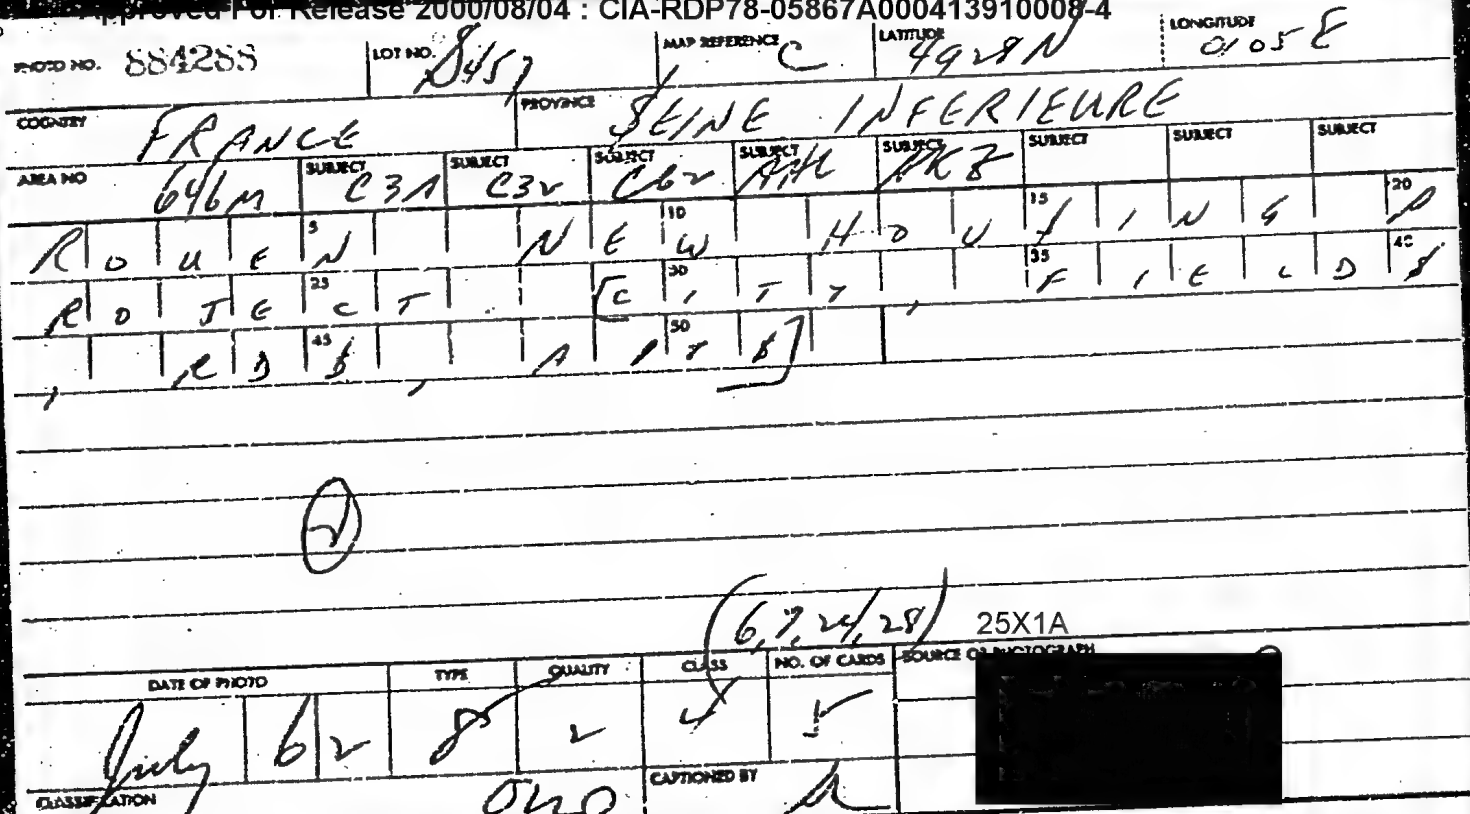 Approved For Release 2000/08/04 : CIA-RDP78-05867A000413910008-4
PHOTO NO. 884288 LOT NO. 8457 MAP REFERENCE C LATITUDE 4928N LONGITUDE 0105E
COUNTRY FRANCE PROVINCE SEINE INFERIEURE
AREA NO 646M SUBJECT C31 SUBJECT C32 SUBJECT C62 SUBJECT SUBJECT SUBJECT SUBJECT SUBJECT
5 10 15 20
ROUEN NEW HOUSING P
25 30 35 40
ROJECT. [CITY, FIELDS
45 50
, RDS, APTS]
2
(6,7,24,28) 25X1A
DATE OF PHOTO TYPE QUALITY CLASS NO. OF CARDS SOURCE OF PHOTOGRAPH
July 62 8 2
CLASSIFICATION OUO CAPTIONED BY